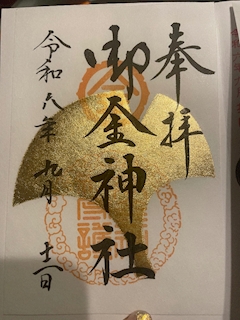 奉拝
御金神社
令和六年 九月 十一日